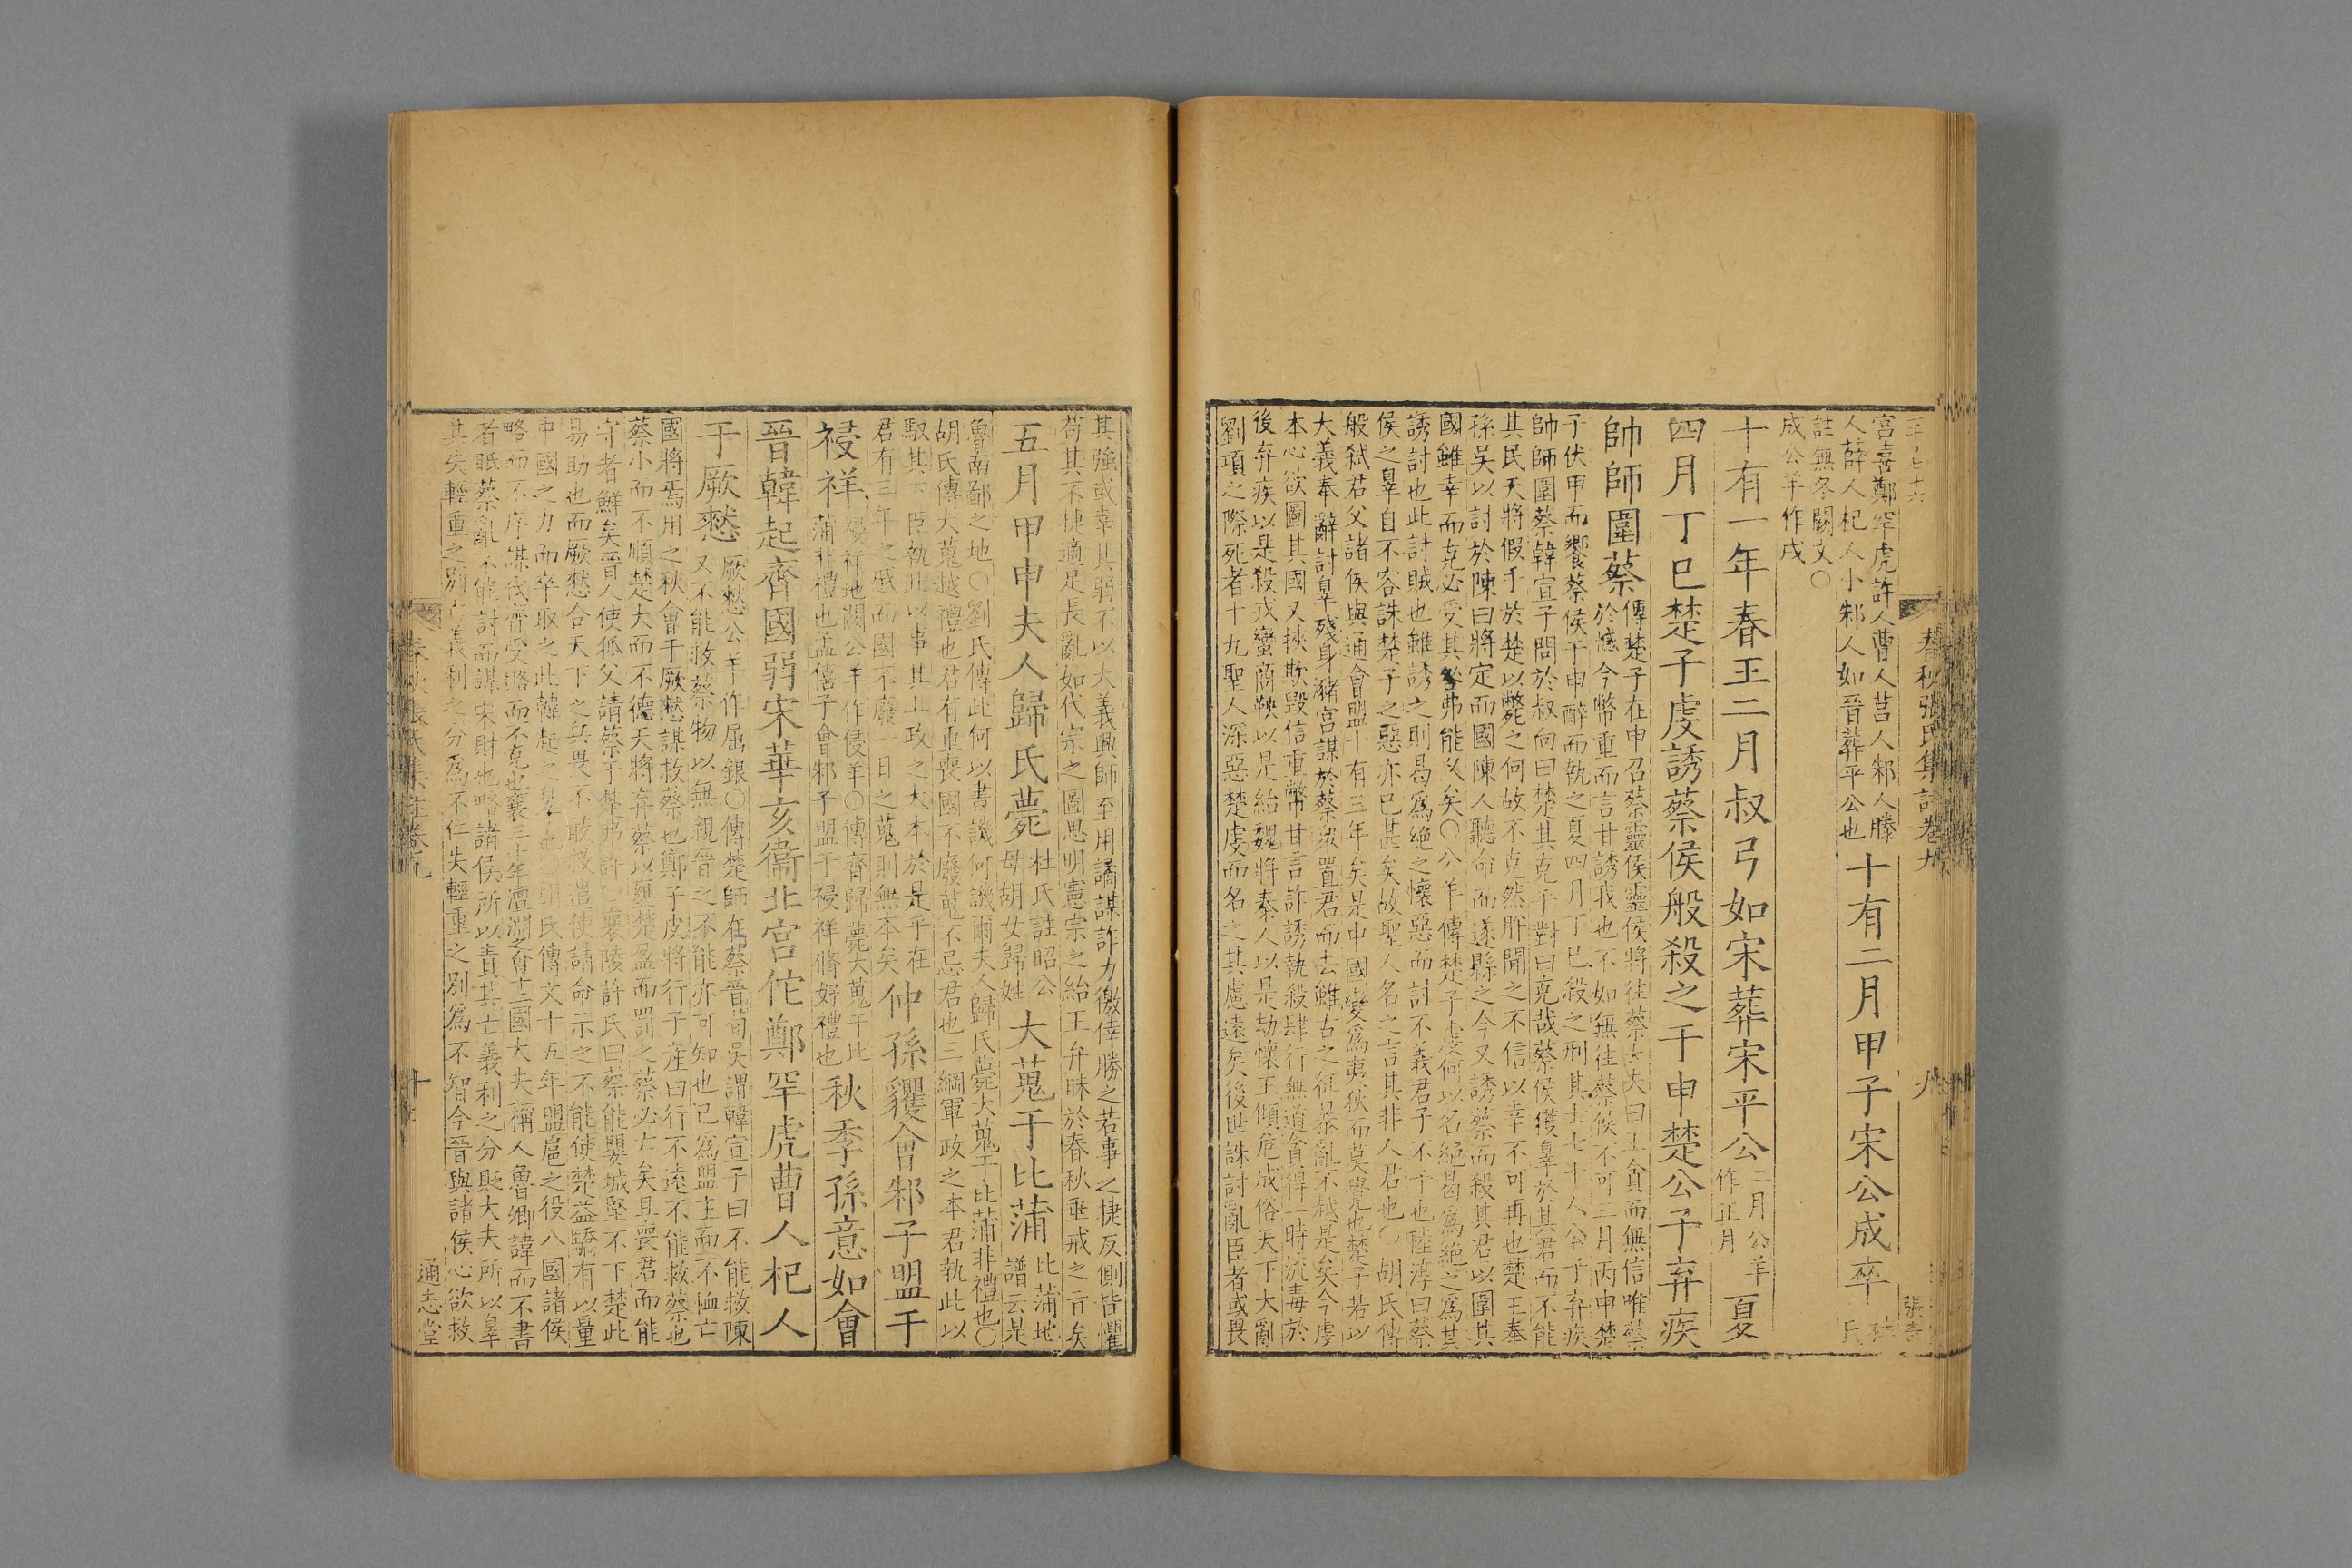 春秋張氏集註卷九
九
宮喜鄭罕虎許人曹人莒人邾人滕
人薛人杞人小邾人如晉葬平公也
十有二月甲子宋公成卒
註無冬闕文〇
成公羊作戌
十有一年春王二月叔弓如宋葬宋平公
二月公羊
作正月
夏
四月丁巳楚子虔誘蔡侯般殺之于申楚公子弃疾
帥師圍蔡
傳楚子在申召蔡靈侯靈侯將往蔡大夫曰王貪而無信唯蔡
於憾今幣重而言甘誘我也不如無往蔡侯不可三月丙申楚
子伏甲而饗蔡侯于申醉而執之夏四月丁巳殺之刑其士七十人公子弃疾
帥師圍蔡韓宣子問於叔向曰楚其克乎對曰克哉蔡侯獲辠於其君而不能
其民天將假手於楚以斃之何故不克然肸聞之不信以幸不可再也楚王奉
孫吳以討於陳曰將定而國陳人聽命而遂縣之今又誘蔡而殺其君以圍其
國雖幸而克必受其咎弗能久矣〇公羊傳楚子虔何以名絕曷為絕之為其
誘討也此討賊也雖誘之則曷為絕之懷惡而討不義君子不予也陸淳曰蔡
侯之辠自不容誅楚子之惡亦已甚矣故聖人名之言其非人君也〇胡氏傳
般弒君父諸侯與通會盟十有三年矣是中國變為夷狄而莫覺也楚子若以
大義奉辭討辠殘身瀦宮謀於蔡衆置君而去雖古之征暴亂不越是矣今虔
本心欲圖其國又挾欺毀信重幣甘言詐誘執殺肆行無道貪得一時流毒於
後弃疾以是殺戎蠻商鞅以是紿魏將秦人以是劫懷王傾危成俗天下大亂
劉項之際死者十九聖人深惡楚虔而名之其慮遠矣後世誅討亂臣者或畏
其強或幸其弱不以大義興師至用譎謀詐力徼倖勝之若事之捷反側皆懼
苟其不捷適足長亂如代宗之圖思明憲宗之紿王弁昧於春秋垂戒之旨矣
五月甲申夫人歸氏薨
杜氏註昭公
母胡女歸姓
大蒐于比蒲
比蒲地
譜云是
魯南鄙之地〇劉氏傳此何以書譏何譏爾夫人歸氏薨大蒐于比蒲非禮也〇
胡氏傳大蒐越禮也君有重喪國不廢蒐不忌君也三綱軍政之本君執此以
馭其下臣執此以事其上政之大本於是乎在
君有三年之慼而國不廢一日之蒐則無本矣
仲孫貜會邾子盟于
祲祥
祲祥地闕公羊作侵羊〇傳齊歸薨大蒐于比
蒲非禮也孟僖子會邾子盟于祲祥脩好禮也
秋季孫意如會
晉韓起齊國弱宋華亥衞北宮佗鄭罕虎曹人杞人
于厥憖
厥憖公羊作屈銀〇傳楚師在蔡晉荀吳謂韓宣子曰不能救陳
又不能救蔡物以無親晉之不能亦可知也已為盟主而不恤亡
國將焉用之秋會于厥憖謀救蔡也鄭子皮將行子產曰行不遠不能救蔡也
蔡小而不順楚大而不德天將弃蔡以壅楚盈而罰之蔡必亡矣且喪君而能
守者鮮矣晉人使狐父請蔡于楚弗許〇襄陵許氏曰蔡能嬰城堅不下楚此
易助也而厥憖合天下之兵畏不敢救遣使請命示之不能使楚益驕有以量
中國之力而卒取之此韓起之辠也〇胡氏傳文十五年盟扈之役八國諸侯
略而不序謀伐齊受賂而不克也襄三十年澶淵之會十二國大夫稱人魯卿諱而不書
者眂蔡亂不能討而謀宋財也略諸侯所以責其亡義利之分貶大夫所以辠
其失輕重之別亡義利之分為不仁失輕重之別為不智今晉與諸侯心欲救
春秋張氏集註卷九
通志堂